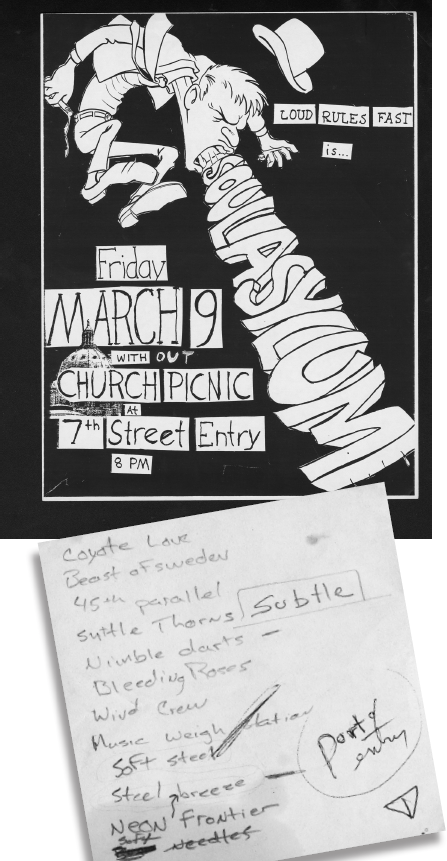 LOUD RULES FAST
is...
SOUL ASYLUM
Friday
MARCH 9
WITH OUT
CHURCH PICNIC
At
7th Street Entry
8 PM
Coyote Love
Beast of sweden
45th parallel
suttle Thorns Subtle
Nimble darts -
Bleeding Roses
Wind Crew
Music weigh station
Soft steel
Steel breeze -
port of
entry
Neon Frontier
soft needles
1